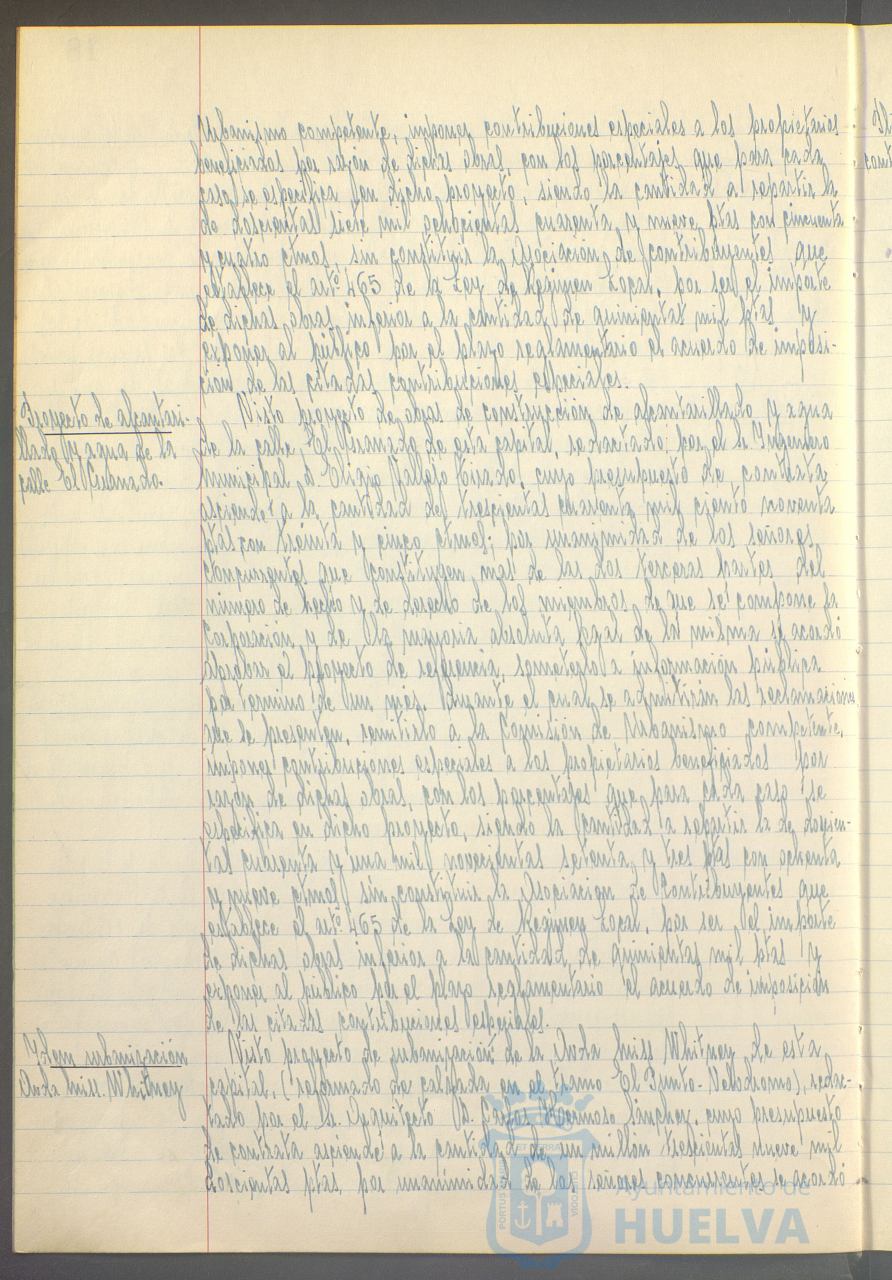 Urbanismo competente, imponer contribuciones especiales a los propietarios
beneficiados por razón de dichas obras, con los porcentajes que para cada
caso se especifica en dicho proyecto, siendo la cantidad a repartir la
de doscientas siete mil ochocientas cuarenta y nueve ptas con cincuenta
y cuatro ctmos, sin constituir la Asociación de contribuyentes que
establece el artº 465 de la Ley de Régimen Local, por ser el importe
de dichas obras inferior a la cantidad de quinientas mil ptas y
exponer al público por el plazo reglamentario el acuerdo de imposi-
ción de las citadas contribuciones especiales.
Proyecto de alcantari-
llado y agua de la
calle El Granado.
Visto proyecto de obras de construcción de alcantarillado y agua
de la calle El Granado de esta capital, redactado por el Sr Ingeniero
Municipal D. Vallejo cuyo presupuesto de contrata
asciende a la cantidad de trescientas cuarenta mil ciento noventa
ptas con treinta y cinco ctmos; por unanimidad de los señores
concurrentes que constituyen mas de las dos terceras partes del
número de hecho y de derecho de los miembros de que se compone la
Corporación y de la mayoría absoluta legal de la misma se acordó
aprobar el proyecto de referencia, someterlo a información pública
por término de un mes, durante el cual se admitirán las reclamaciones
que se presenten, remitirlo a la Comisión de Urbanismo competente,
imponer contribuciones especiales a los propietarios beneficiados por
razon de dichas obras, con los porcentajes que para cada caso se
especifica en dicho proyecto, siendo la cantidad a repartir la de doscien-
tas cuarenta y una mil novecientas setenta y tres ptas con ochenta
y nueve ctmos sin constituir la Asociación de Contribuyentes que
establece el artº 465 de la Ley de Régimen Local, por ser el importe
de dichas obras inferior a la cantidad de quinientas mil ptas y
exponer al público por el plazo reglamentario el acuerdo de imposición
de las citadas contribuciones especiales.
Idem urbanización
Avda Miss. Whitney
Visto proyecto de urbanización de la Avda Miss Whitney, de esta
capital, (reformado de calzada en el tramo El Punto-Velodromo), redac-
tado por el Sr Arquitecto D. Hermoso Sánchez, cuyo presupuesto
de contrata asciende a la cantidad de un millón trescientas nueve mil
doscientas ptas, por unanimidad de los señores concurrentes se acordó
Ayuntamiento de
HUELVA